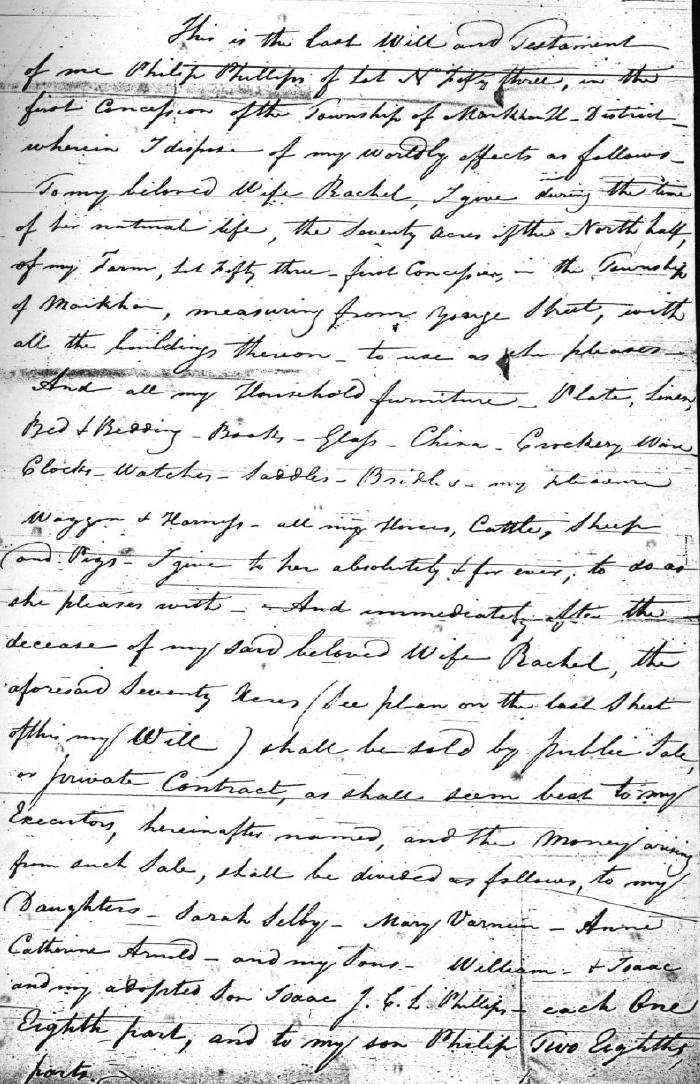 This is the Last Will and Testament
of me Philip Phillips of Lot No Fifty three, in the
first Concession of the Township of Markham H. District
wherein I dispose of my worldly effects as follows
To my beloved Wife Rachel, I give during the time
of her natural life, the Seventy Acres of the North half,
of my Farm, Lot Fifty three - first Concession, in the Township
of Markham, measuring from Yonge Street, with
all the buildings thereon - to use as she pleases -
And all my Household furniture - Plate, Linen,
Bed & Bedding - Books - Glass - China - Crockery Ware
Clocks - Watches - Saddles - Bridles - my pleasure
Waggon & Harness - all my Horses, Cattle, Sheep
and Pigs - I give to her absolutely & for ever, to do as
she pleases with - And immediately after the
decease of my said beloved Wife Rachel, the
aforesaid Seventy Acres (See plan on the last Sheet
of this my Will) shall be sold by public Sale,
or private Contract, as shall seem best to my
Executors, hereinafter named, and the Money arising
from such Sale, shall be divided as follows, to my
Daughters - Sarah Selby - Mary - Anne
Catherine Arnold - and my Sons - William - & Isaac
and my adopted Son Isaac J. C. L. Phillips - each One
Eighth part, and to my son Philip Two Eighths
parts.